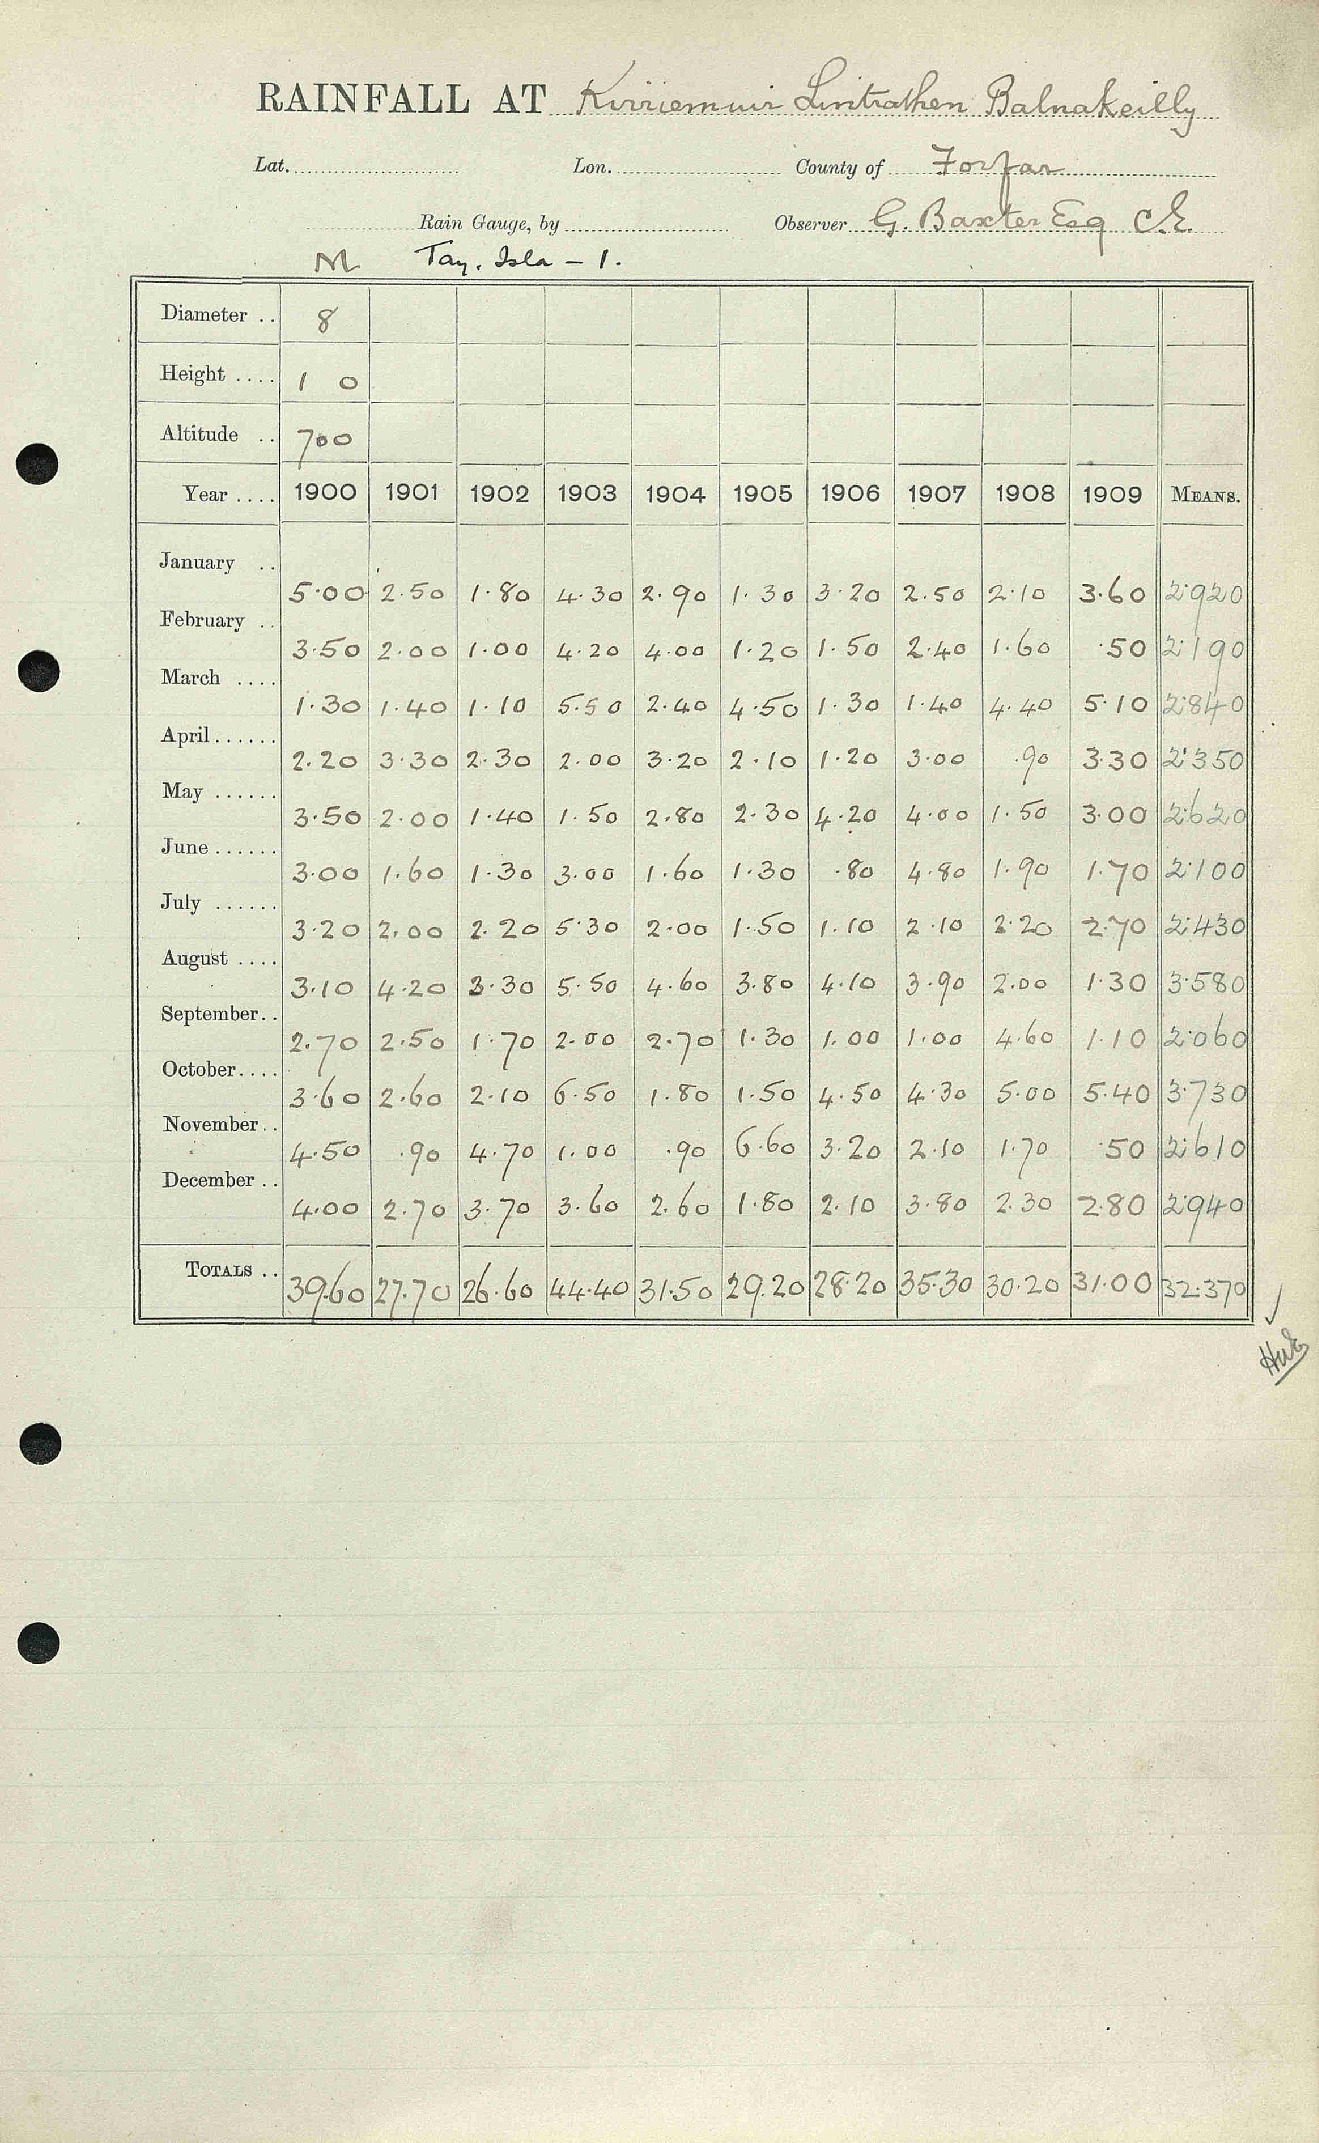 RAINFALL AT Kirriemuir Lintrathen Balnakeilly
Lat. Lon. County of Forfar
Rain Gauge, by Observer G. Baxter Esq C.E.
M Tay. Isla – 1.
Diameter .. 8
Height .... 1 0
Altitude .. 700
Year .... 1900 1901 1902 1903 1904 1905 1906 1907 1908 1909 MEANS.
January .. 5·00 2·50 1·80 4·30 2·90 1·30 3·20 2·50 2·10 3·60 2·920
February .. 3·50 2·00 1·00 4·20 4·00 1·20 1·50 2·40 1·60 ·50 2·190
March .... 1·30 1·40 1·10 5·50 2·40 4·50 1·30 1·40 4·40 5·10 2·840
April...... 2·20 3·30 2·30 2·00 3·20 2·10 1·20 3·00 ·90 3·30 2·350
May ...... 3·50 2·00 1·40 1·50 2·80 2·30 4·20 4·00 1·50 3·00 2·620
June ...... 3·00 1·60 1·30 3·00 1·60 1·30 ·80 4·80 1·90 1·70 2·100
July ...... 3·20 2·00 2·20 5·30 2·00 1·50 1·10 2·10 2·20 2·70 2·430
August .... 3·10 4·20 3·30 5·50 4·60 3·80 4·10 3·90 2·00 1·30 3·580
September.. 2·70 2·50 1·70 2·00 2·70 1·30 1·00 1·00 4·60 1·10 2·060
October.... 3·60 2·60 2·10 6·50 1·80 1·50 4·50 4·30 5·00 5·40 3·730
November.. 4·50 ·90 4·70 1·00 ·90 6·60 3·20 2·10 1·70 ·50 2·610
December .. 4·00 2·70 3·70 3·60 2·60 1·80 2·10 3·80 2·30 2·80 2·940
TOTALS .. 39·60 27·70 26·60 44·40 31·50 29·20 28·20 35·30 30·20 31·00 32·370